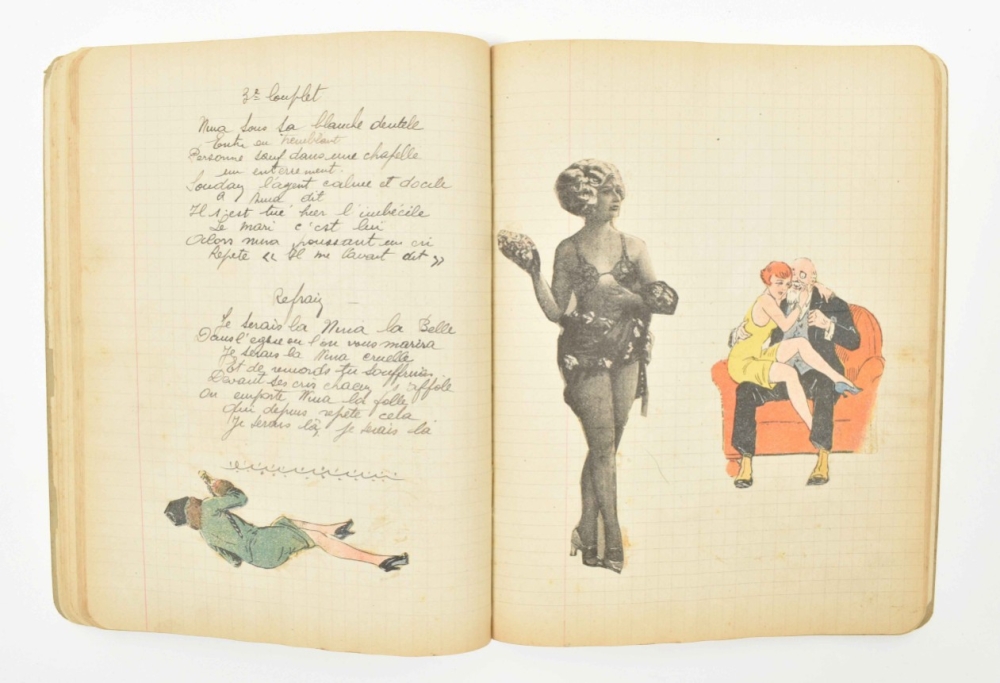 3e Couplet
Nina sous sa blanche dentelle
Entre en tremblant
Personne sauf dans une chapelle
un enterrement.
Soudain l'agent calme et docile
A Nina dit
Il s'est tué hier l'imbécile
Le mari c'est lui
Alors nina poussant un cri
Répète « Il me l'avait dit »
Refrain
Je serais là Nina la Belle
Dans l'église ou l'on vous mariera
Je serais là Nina cruelle
Et de remords tu souffriras
Devant ses cris chacun s'affole
On emporte Nina la folle
qui depuis repete cela
Je serais là, je serais là